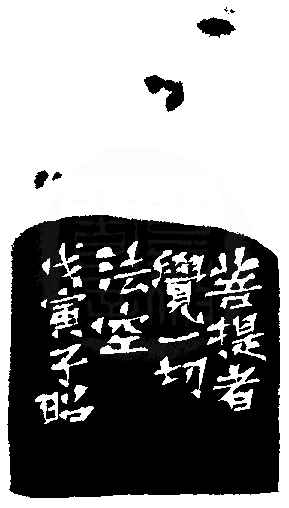 菩提者
覺一切
法空
戊寅子昭